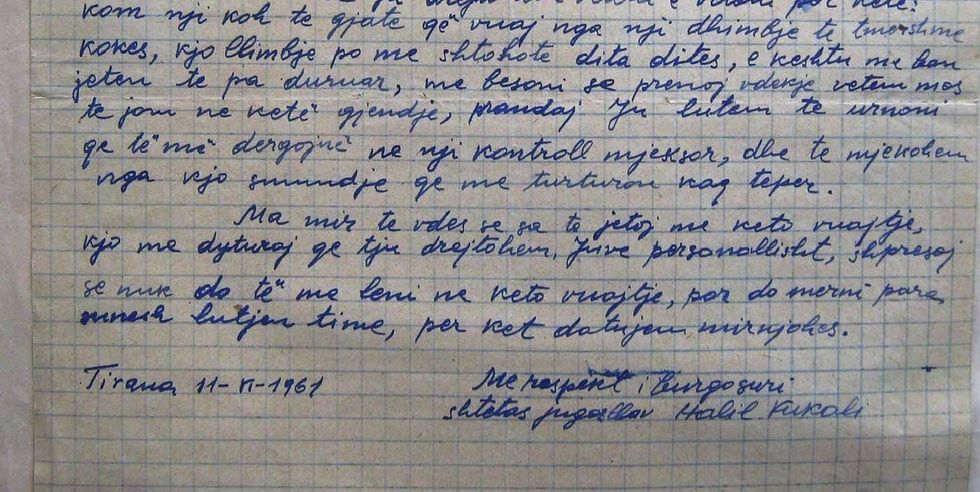 kom nji koh te gjatë që vuaj nga nji dhimbje te tmershme
kokes, kjo dhimbje po me shtohete dita dites, e keshtu me ban
jeten te pa duruar, me besoni se prenoj vdekje vetem mos
te jom ne ketë gjendje, prandaj Ju lutem te urnoni
qe të më dergojnë ne nji kontroll mjeksor, dhe te mjekohem
nga kjo smundje qe me turturon kaq teper.
Ma mir te vdes se sa te jetoj me keto vuajtje,
kjo me dyturoj qe tju drejtohem Juve personallisht, shpresoj
se nuk do të me leni ne keto vuajtje, por do merni para
lutjen time, per ket detujem mirnjohes.
Tirana 11-VI-1961
Me respekt i burgosuri
shtetas jugosllav Halil Fukali